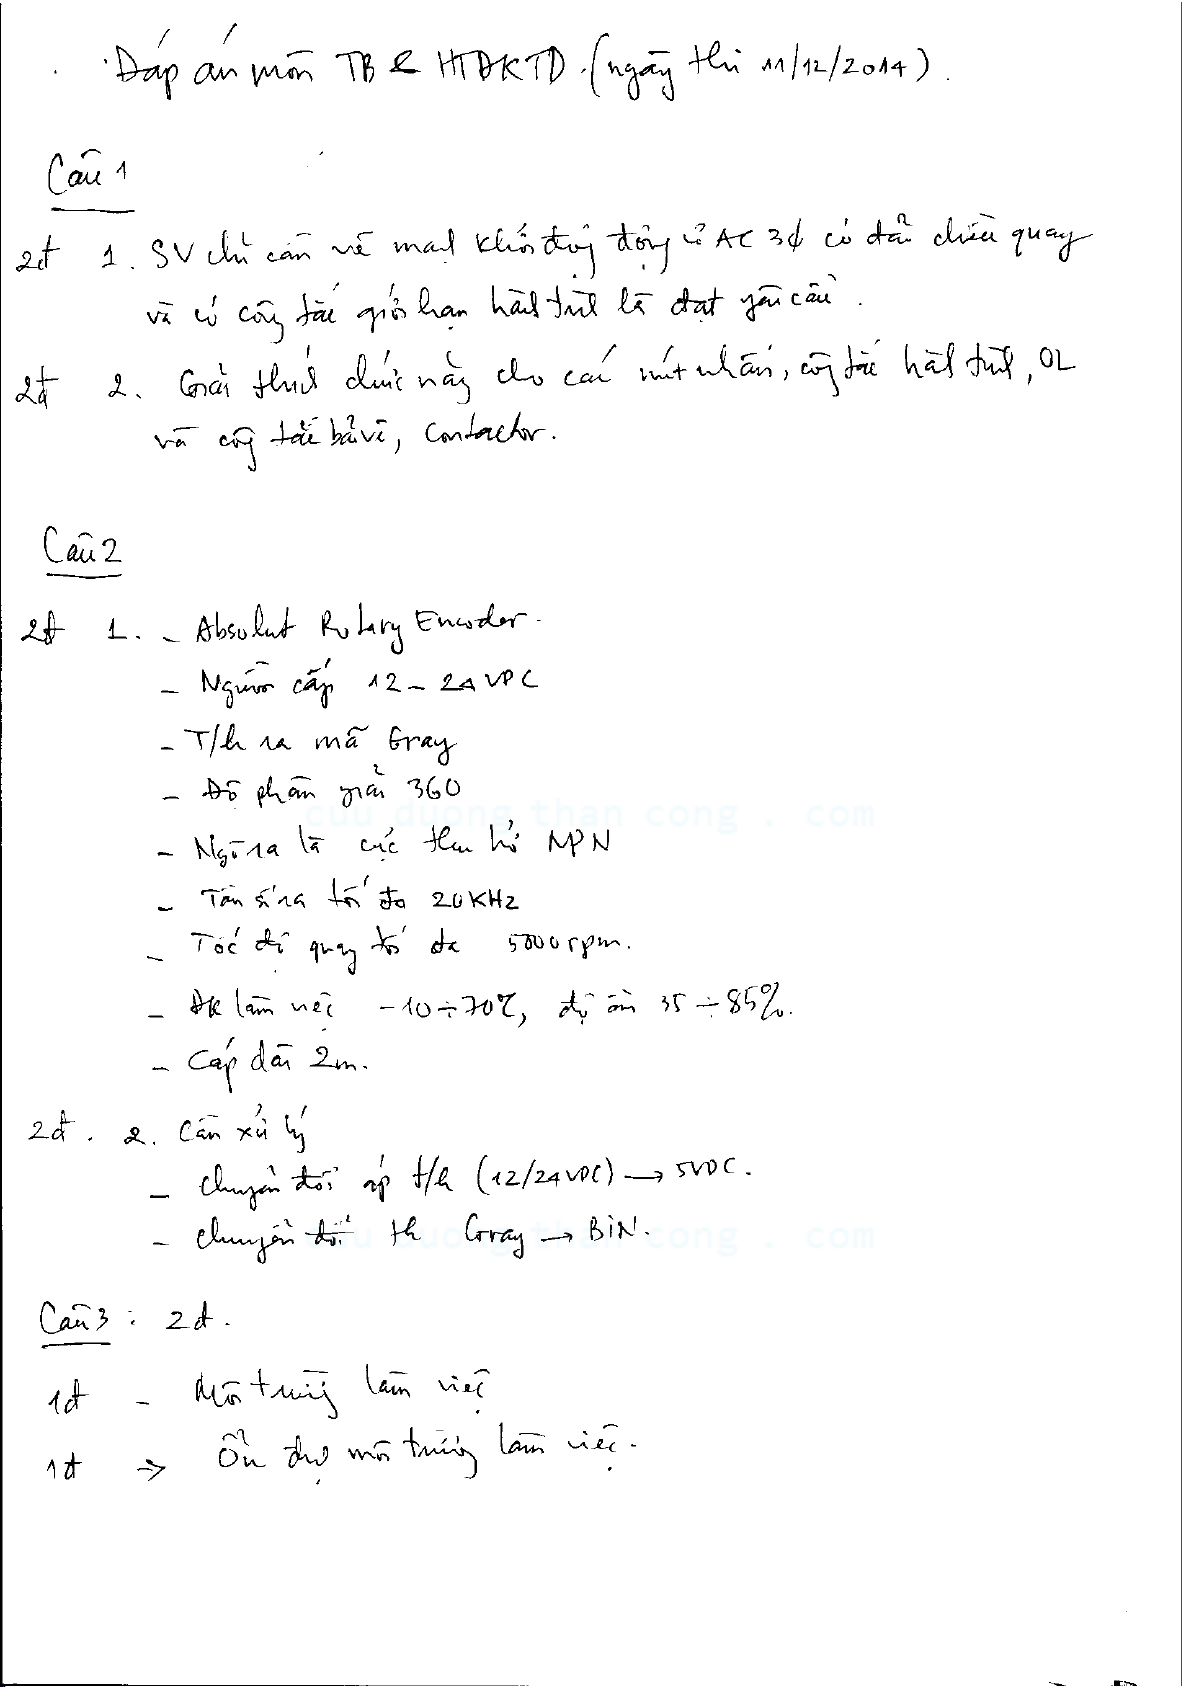 Đáp án môn TB & HTĐKTD. (ngày thi 11/12/2014).
Câu 1
2đ 1. SV chỉ cần vẽ mạch khởi động động cơ AC 3ϕ có đảo chiều quay
và có công tắc giới hạn hành trình là đạt yêu cầu.
2đ 2. Giải thích chức năng cho các nút nhấn, công tắc hành trình, OL
và công tắc bảo vệ, Contactor.
Câu 2
2đ 1. - Absolut Rotary Encoder.
- Nguồn cấp 12-24VDC
- T/h ra mã Gray
- Độ phân giải 360
cuu duong than cong . com
- Ngõ ra là cực thu hở NPN
- Tần số ra tối đa 20KHz
- Tốc độ quay tối đa 5000rpm.
- ĐK làm việc -10÷70℃, độ ẩm 35÷85%.
- Cáp dài 2m.
2đ. 2. Cần xử lý
- chuyển đổi áp t/h (12/24VDC) → 5VDC.
- chuyển đổi th Gray → BIN.
cuu duong than cong . com
Câu 3 : 2đ.
1đ - Môi trường làm việc
1đ ⇒ Ổn định môi trường làm việc.